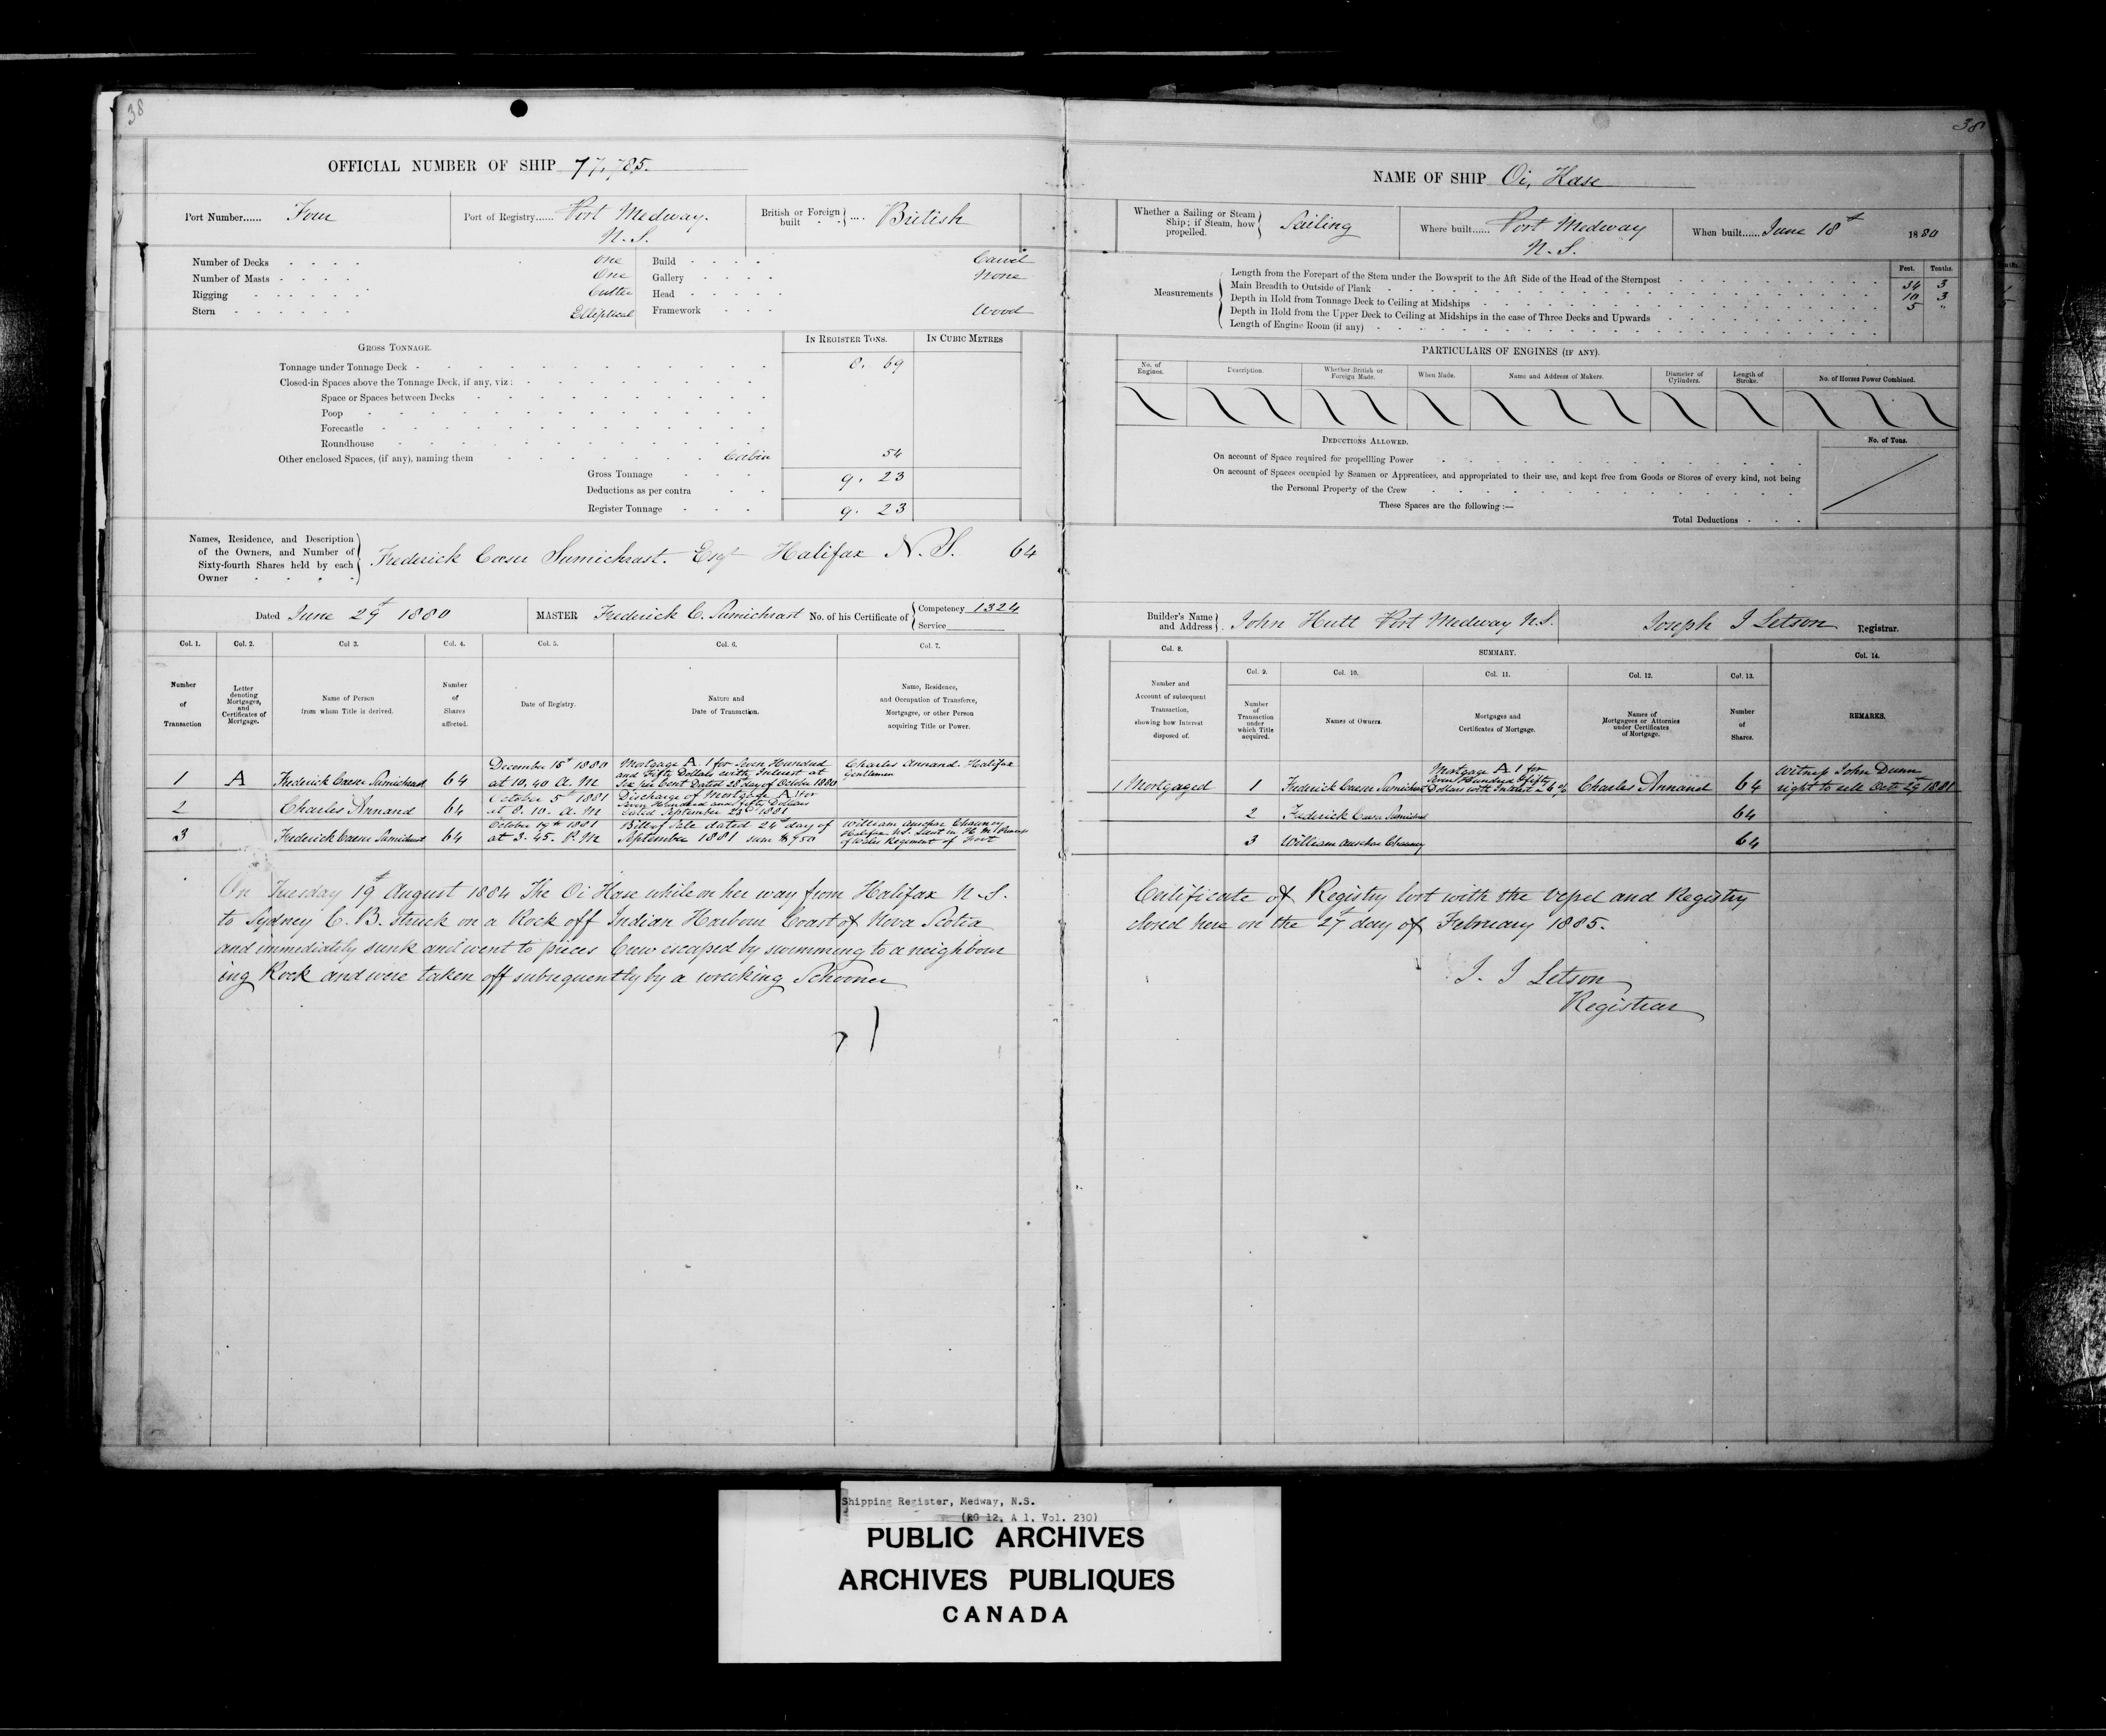 38
OFFICIAL NUMBER OF SHIP 77,785.
Port Number...... Four
Port of Registry...... Port Medway. N.S.
British or Foreign built .... British
Number of Decks One
Number of Masts One
Rigging Cutter
Stern Elliptical
Build Carvel
Gallery None
Head
Framework Wood
GROSS TONNAGE.
IN REGISTER TONS.
IN CUBIC METRES
Tonnage under Tonnage Deck 8. 69
Closed-in Spaces above the Tonnage Deck, if any, viz:
Space or Spaces between Decks
Poop
Forecastle
Roundhouse
Other enclosed Spaces, (if any), naming them Cabin 54
Gross Tonnage 9. 23
Deductions as per contra
Register Tonnage 9. 23
Names, Residence, and Description
of the Owners, and Number of
Sixty-fourth Shares held by each
Owner
Frederick Caesar Sumichrast. Esqr Halifax N.S. 64
Dated June 29th 1880
MASTER Frederick C. Sumichrast No. of his Certificate of Competency 1324
Service
Col. 1. Col. 2. Col 3. Col. 4. Col. 5. Col. 6. Col. 7.
Number of Transaction
Letter denoting Mortgages, and Certificates of Mortgage.
Name of Person from whom Title is derived.
Number of Shares affected.
Date of Registry.
Nature and Date of Transaction.
Name, Residence, and Occupation of Transferee, Mortgagee, or other Person acquiring Title or Power.
1 A Frederick Caesar Sumichrast 64 December 15th 1880 at 10,40 A.M Mortgage A 1 for Seven Hundred and Fifty Dollars with Interest at Six per Cent Dated 28th day of October 1880 Charles Annand. Halifax Gentleman
2 Charles Annand 64 October 5th 1881 at 8.10. A.M Discharge of Mortgage A 1 for Seven Hundred and fifty Dollars Dated September 23d 1881
3 Frederick Caesar Sumichrast 64 October 19th 1881 at 3.45. P.M Bill of Sale dated 24th day of September 1881 sum $950 William Chauncy Halifax N.S. Lieut in H.M. of Wales Regiment of Foot
On Tuesday 19th August 1884 The Oi Hase while on her way from Halifax N.S.
to Sydney C.B. Struck on a Rock off Indian Harbour Coast of Nova Scotia
and immediately sunk and went to pieces Crew escaped by swimming to a neighbour
ing Rock and were taken off subsequently by a wrecking Schooner
38
NAME OF SHIP Oi, Hase
Whether a Sailing or Steam Ship; if Steam, how propelled. Sailing
Where built...... Port Medway N.S.
When built...... June 18th 1880
Measurements
Feet. Tenths.
Length from the Forepart of the Stem under the Bowsprit to the Aft Side of the Head of the Sternpost 34 3
Main Breadth to Outside of Plank 10 3
Depth in Hold from Tonnage Deck to Ceiling at Midships 5 "
Depth in Hold from the Upper Deck to Ceiling at Midships in the case of Three Decks and Upwards
Length of Engine Room (if any)
PARTICULARS OF ENGINES (IF ANY).
No. of Engines.
Description.
Whether British or Foreign Made.
When Made.
Name and Address of Makers.
Diameter of Cylinders.
Length of Stroke.
No. of Horses Power Combined.
DEDUCTIONS ALLOWED.
No. of Tons.
On account of Space required for propellling Power
On account of Spaces occupied by Seamen or Apprentices, and appropriated to their use, and kept free from Goods or Stores of every kind, not being
the Personal Property of the Crew
These Spaces are the following :—
Total Deductions
Builder's Name and Address John Hutt Port Medway N.S.
Joseph I Letson Registrar.
Col. 8.
SUMMARY.
Col. 9. Col. 10. Col. 11. Col. 12. Col. 13. Col. 14.
Number and Account of subsequent Transaction, showing how Interest disposed of.
Number of Transaction under which Title acquired.
Names of Owners.
Mortgages and Certificates of Mortgage.
Names of Mortgagees or Attornies under Certificates of Mortgage.
Number of Shares.
REMARKS.
1 Mortgaged 1 Frederick Caesar Sumichrast Mortgage A 1 for Seven Hundred & fifty Dollars with Interest a 6 % Charles Annand 64 Witness John Dunn right to sell Oct 29th 1881
2 Frederick Caesar Sumichrast 64
3 William Chauncy 64
Certificate of Registry lost with the Vessel and Registry
closed here on the 27th day of February 1885.
J. I Letson
Registrar
Shipping Register, Medway, N.S.
(RG 12, A 1, Vol. 230)
PUBLIC ARCHIVES
ARCHIVES PUBLIQUES
CANADA